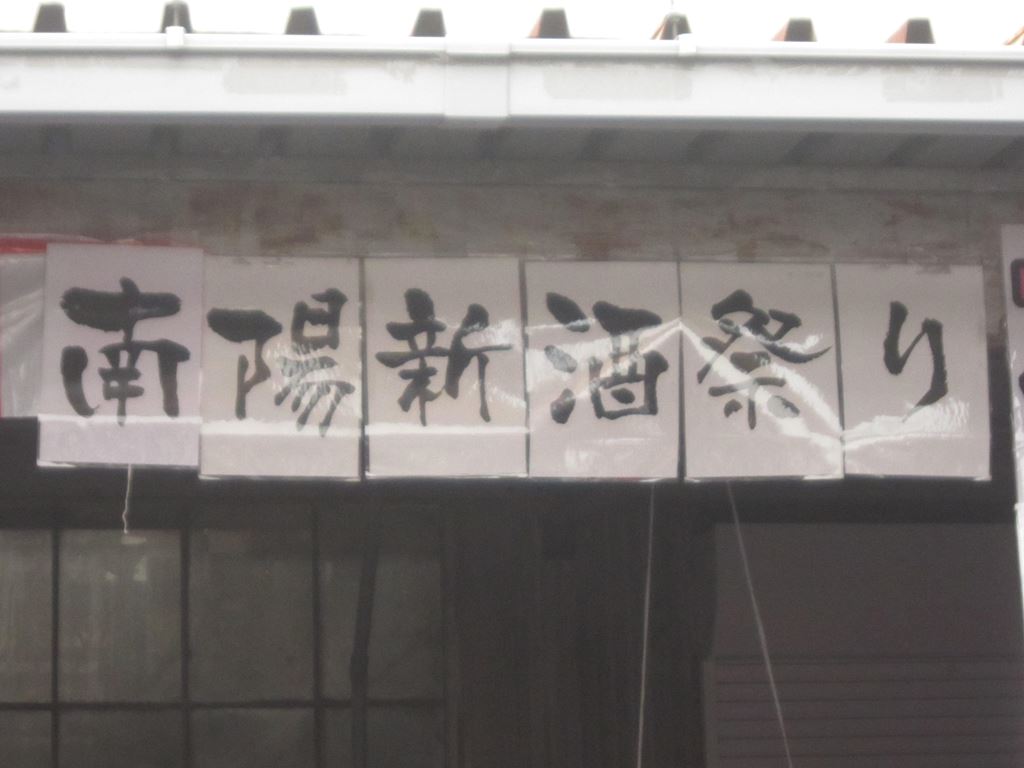 南陽新酒祭り